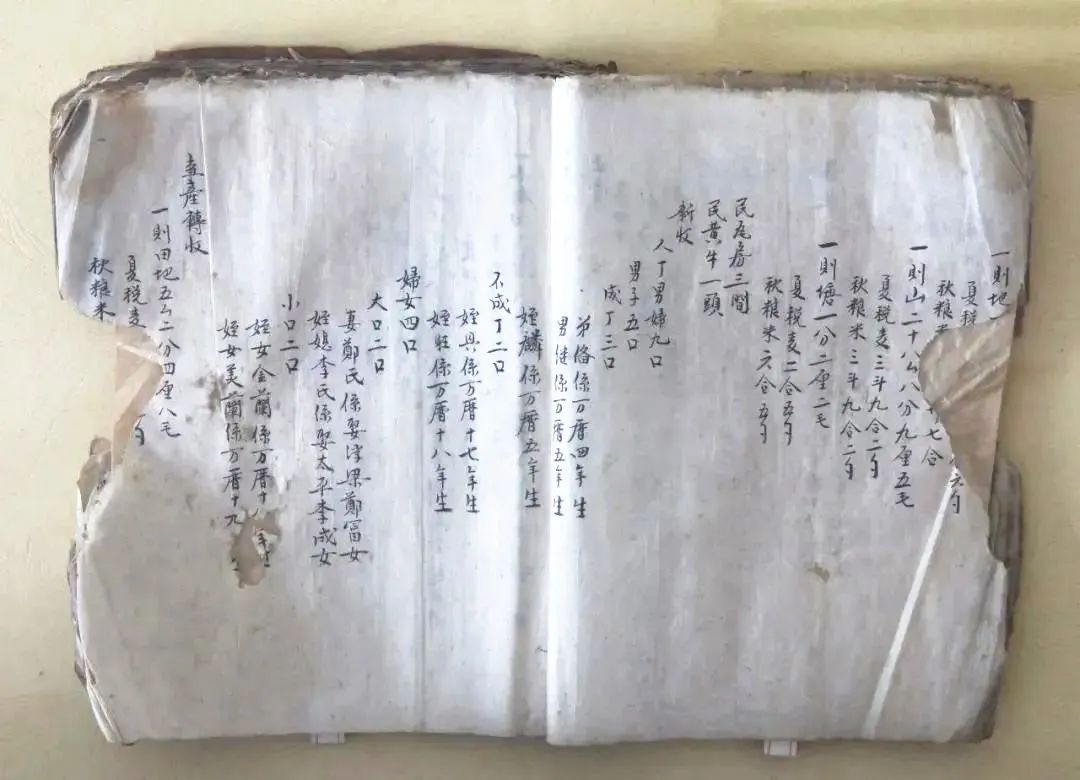 一則地
夏税
秋粮米 七合
六勺
一則山二十八厶八分九厘五毛
夏税麦三斗九合二勺
秋粮米三斗九合二勺
一則塘一分二厘二毛
夏税麦二合五勺
秋粮米六合五勺
民瓦房三間
民黄牛一頭
新收
人丁男婦九口
男子五口
成丁三口
弟 係万曆四年生
男 係万曆五年生
姪麟係万曆五年生
不成丁二口
姪興係万曆十七年生
姪旺係万曆十八年生
婦女四口
大口二口
妻鄭氏係娶 梁鄭冨女
姪媳李氏係娶太平李成女
小口二口
姪女金蘭係万曆十 年生
姪女美蘭係万曆十九
產轉收
一則田地五厶二分四厘八毛
夏税麦 勺
秋粮米